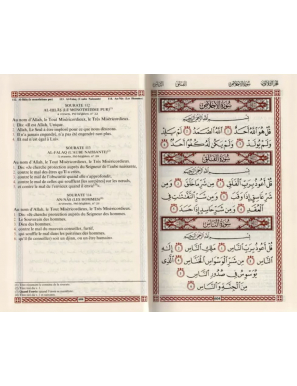 SOURATE 112
AL-IKHLAS (LE MONOTHÉISME PUR)
Au nom d'Allah, le Tout Miséricordieux, le Très Miséricordieux.
1. Dis: «Il est Allah, Unique.
2. Allah, Le Seul à être imploré pour ce que nous désirons.
3. Il n'a jamais engendré, n'a pas été engendré non plus.
4. Et nul n'est égal à Lui».
SOURATE 113
AL-FALAQ (L'AUBE NAISSANTE)
Au nom d'Allah, le Tout Miséricordieux, le Très Miséricordieux.
1. Dis: «Je cherche protection auprès du Seigneur de l'aube naissante,
2. contre le mal des êtres qu'Il a créés,
3. contre le mal de l'obscurité quand elle s'approfondit,
4. contre le mal de celles qui soufflent (les sorcières) sur les nœuds,
5. et contre le mal de l'envieux quand il envie».
SOURATE 114
AN-NAS (LES HOMMES)
Au nom d'Allah, le Tout Miséricordieux, le Très Miséricordieux.
1. Dis: «Je cherche protection auprès du Seigneur des hommes.
2. Le Souverain des hommes,
3. Dieu des hommes,
4. contre le mal du mauvais conseiller, furtif,
5. qui souffle le mal dans les poitrines des hommes,
6. qu'il (le conseiller) soit un djinn, ou un être humain».
سُورَةُ الإِخْلَاصِ
بِسْمِ اللَّهِ الرَّحْمَٰنِ الرَّحِيمِ
قُلْ هُوَ اللَّهُ أَحَدٌ ١ اللَّهُ الصَّمَدُ ٢ لَمْ يَلِدْ
وَلَمْ يُولَدْ ٣ وَلَمْ يَكُن لَّهُ كُفُوًا أَحَدٌ ٤
سُورَةُ الفَلَقِ
بِسْمِ اللَّهِ الرَّحْمَٰنِ الرَّحِيمِ
قُلْ أَعُوذُ بِرَبِّ الْفَلَقِ ١ مِن شَرِّ مَا خَلَقَ ٢ وَمِن
شَرِّ غَاسِقٍ إِذَا وَقَبَ ٣ وَمِن شَرِّ النَّفَّاثَاتِ فِي
الْعُقَدِ ٤ وَمِن شَرِّ حَاسِدٍ إِذَا حَسَدَ ٥
سُورَةُ النَّاسِ
بِسْمِ اللَّهِ الرَّحْمَٰنِ الرَّحِيمِ
قُلْ أَعُوذُ بِرَبِّ النَّاسِ ١ مَلِكِ النَّاسِ ٢
إِلَٰهِ النَّاسِ ٣ مِن شَرِّ الْوَسْوَاسِ الْخَنَّاسِ ٤ الَّذِي
يُوَسْوِسُ فِي صُدُورِ النَّاسِ ٥
مِنَ الْجِنَّةِ وَالنَّاسِ ٦